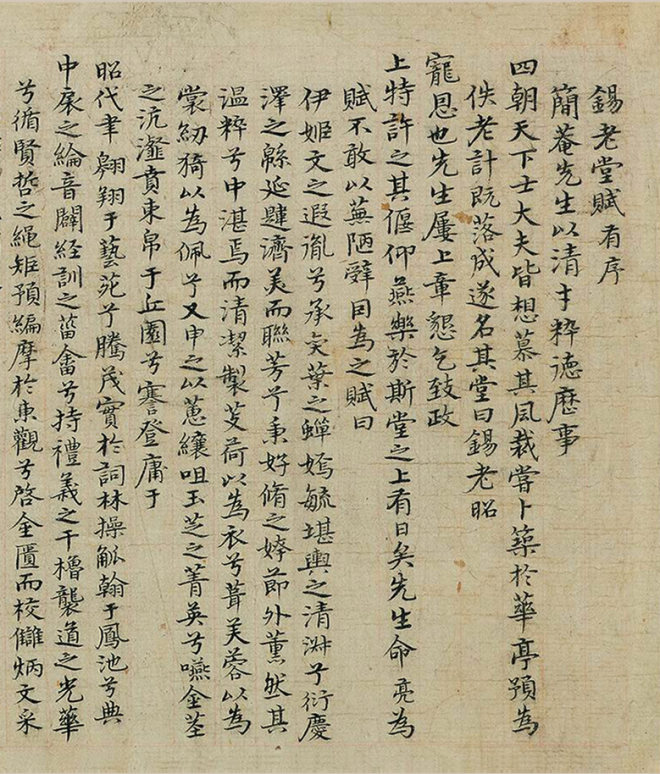 錫老堂賦有序
簡菴先生以清才粹德歷事
四朝天下士大夫皆想慕其風裁嘗卜築於華亭預為
佚老計既落成遂名其堂曰錫老昭
寵恩也先生屢上章懇乞致政
上特許之其偃仰燕樂於斯堂之上有日矣先生命亮為
賦不敢以蕪陋辭因為之賦曰
伊姬文之遐胤兮承奕葉之蟬嫣毓堪輿之清淑兮衍慶
澤之緜延肆濟美而聯芳兮秉好脩之姱節外薰然其
温粹兮中湛焉而清潔製芰荷以為衣兮葺芙蓉以為
裳紉猗以為佩兮又申之以蕙纕咀玉芝之菁英兮嚥金荃
之沆瀣賁束帛于丘園兮謇登庸于
昭代聿翱翔于藝苑兮騰茂實於詞林操觚翰于鳳池兮典
中扆之綸音闢經訓之菑畬兮持禮義之干櫓襲道之光華
兮循賢哲之繩矩預編摩於東觀兮啓金匱而校讎炳文采